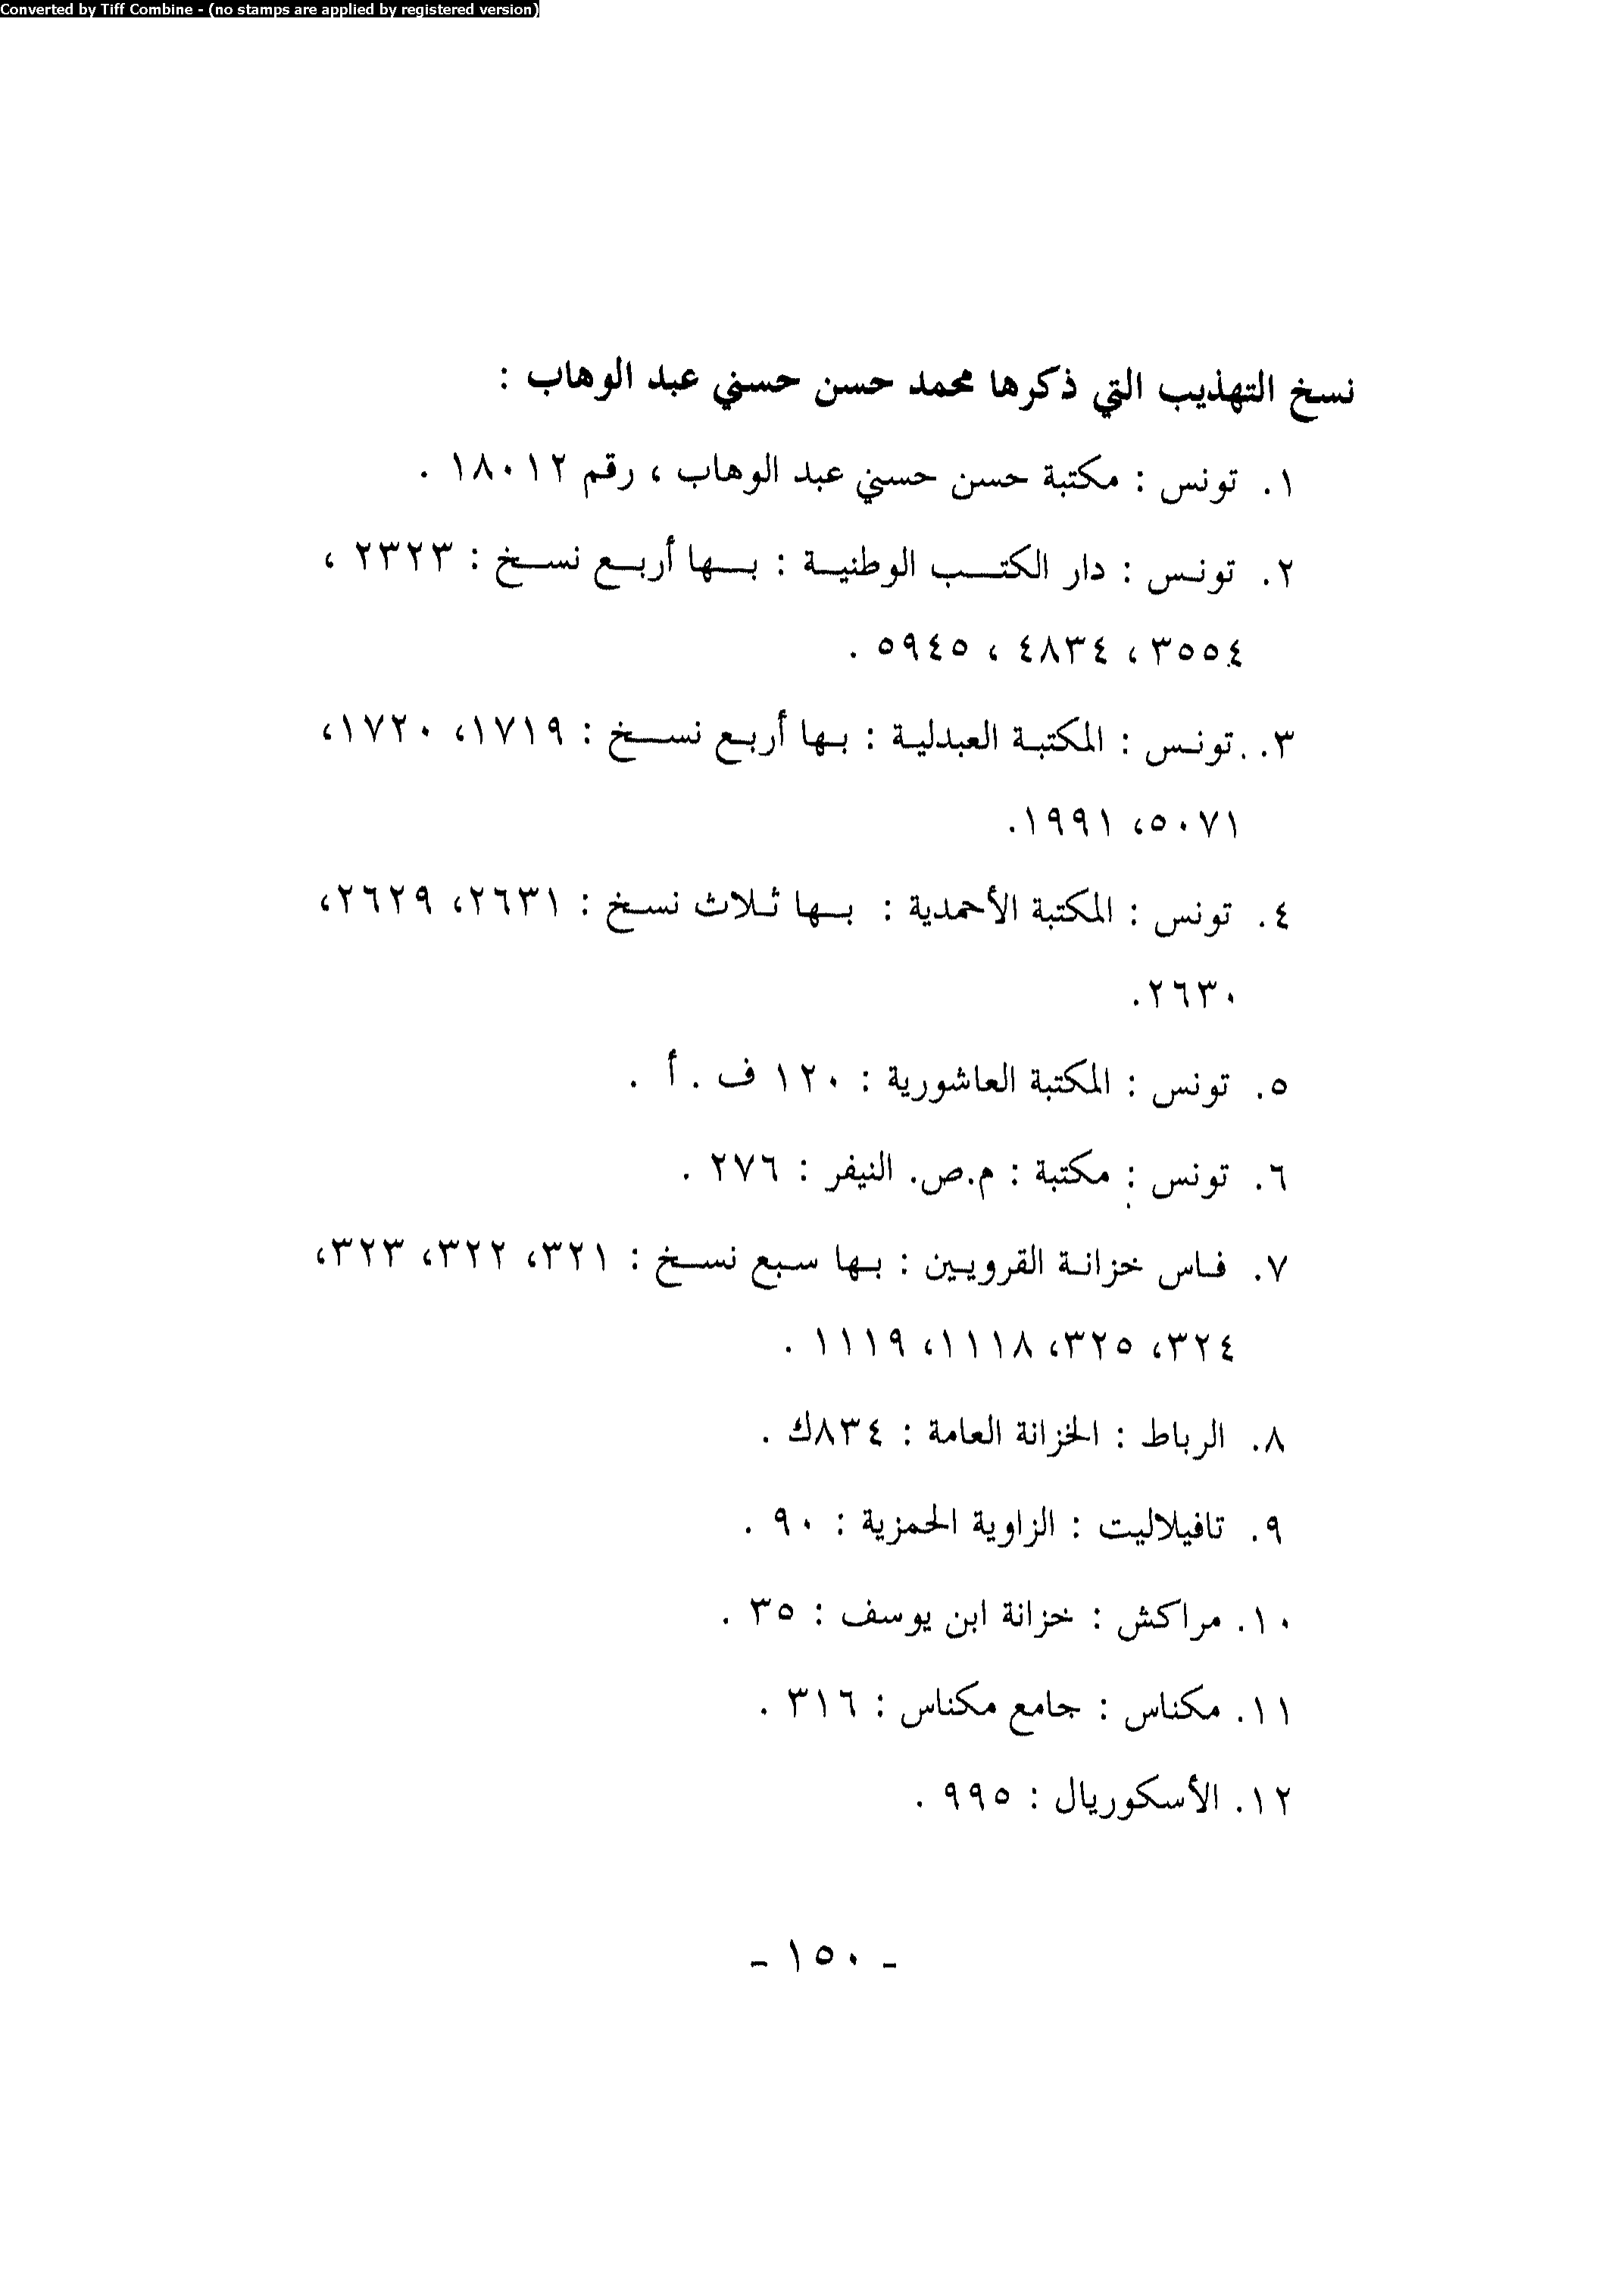 Converted by Tiff Combine - (no stamps are applied by registered version)
نسخ التهذيب التي ذكرها محمد حسن حسني عبد الوهاب :
١. تونس : مكتبة حسن حسني عبد الوهاب ، رقم ١٨٠١٢ .
٢. تونس : دار الكتب الوطنية : بها أربع نسخ : ٢٣٢٣ ،
٣٥٥٤ ، ٤٨٣٤ ، ٥٩٤٥ .
٣. تونس : المكتبة العبدلية : بها أربع نسخ : ١٧١٩، ١٧٢٠،
٥٠٧١، ١٩٩١.
٤. تونس : المكتبة الأحمدية : بها ثلاث نسخ : ٢٦٣١، ٢٦٢٩،
٢٦٣٠.
٥. تونس : المكتبة العاشورية : ١٢٠ ف . أ .
٦. تونس : مكتبة : م.ص. النيفر : ٢٧٦ .
٧. فاس خزانة القرويين : بها سبع نسخ : ٣٢١، ٣٢٢، ٣٢٣،
٣٢٤، ٣٢٥، ١١١٨، ١١١٩ .
٨. الرباط : الخزانة العامة : ٨٣٤ك .
٩. تافيلاليت : الزاوية الحمزية : ٩٠ .
١٠. مراكش : خزانة ابن يوسف : ٣٥ .
١١. مكناس : جامع مكناس : ٣١٦ .
١٢. الأسكوريال : ٩٩٥ .
- ١٥٠ -